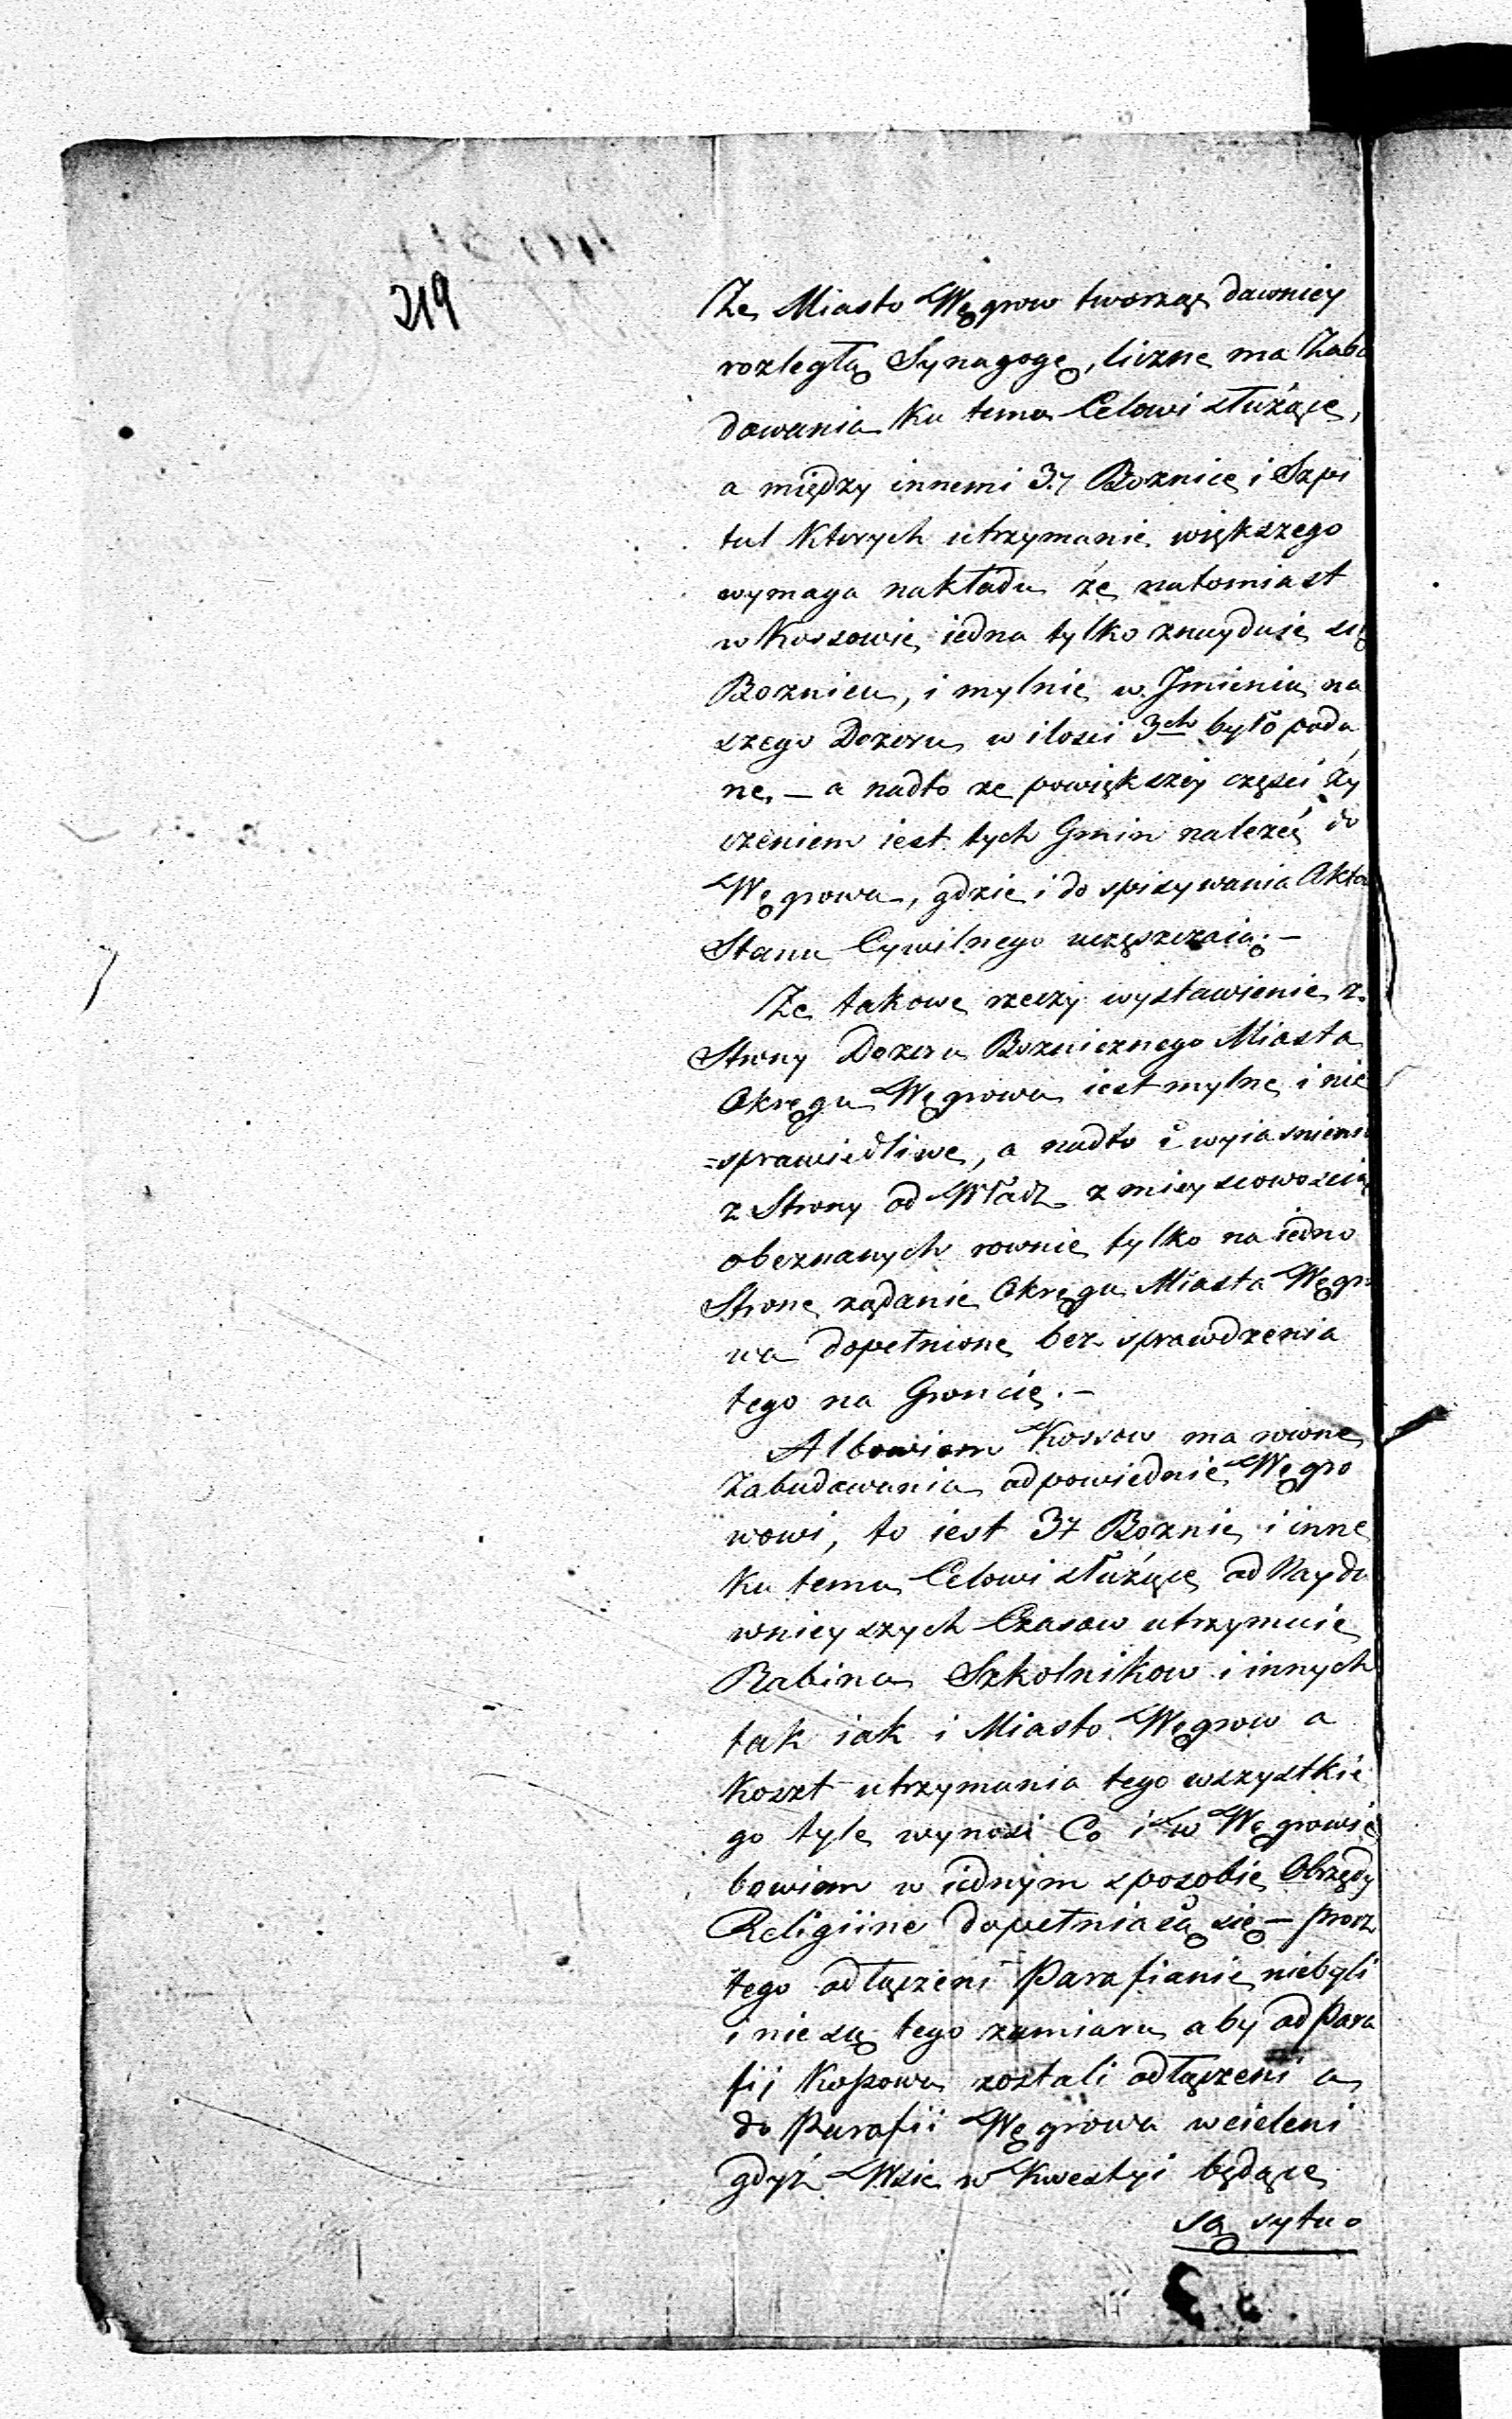 219
Że Miasto Węgrow tworząc dawniey
rozległą Synagogę, liczne ma Zabu
dowania Ku temu Celowi służące,
a między innemi 3y Boznice i Szpi
tal Ktorych utrzymanie większego
wymaga nakładu że natomiast
w Kossowie iedna tylko znayduie się
Boznica, i mylnie w Jmieniu na
szego Dozoru w ilosci 3ch było poda
ne, – a nadto ze powiększey częsci ży
czeniem iest tych Gmin należeć do
Węgrowa, gdzie i do spisywania Akto
Stanu Cywilnego uczęszczaią. –
Ze takowe rzeczy wystawienie z
Strony Dozoru Bozniczнego Miasta
Okręgu Węgrowa iest mylne i nie
=sprawiedliwe, a nadto i wyiasnieni
z Strony od Władz z mieyscowoscią
obeznanych rownie tylko na iedno
Strone ządanie Okręgu Miasta Węgro
wa dopełnione bez sprawdzenia
tego na Gruncie. –
Albowiem Kossow ma rowne
Zabudowania odpowiednie Węgro
wowi, to iest 3y Boznic i inne
Ku temu Celowi służące od Nayda
wnieyszych Czasow utrzymuie
Rabina Szkolnikow i innych
tak iak i Miasto Węgrow a
Koszt utrzymania tego wszystkie
go tyle wynosi Co i w Węgrowie
bowiem w iednym sposobie Obrzędy
Religiine dopełniaią się – procz
tego odłączeni Parafianie niebyli
i nie są tego zamiaru aby od Para
fii Kossowa zostali odłączeni a
do Parafii Węgrowa wcieleni
gdyż Wsie w Kwestyi będące
są sytuo